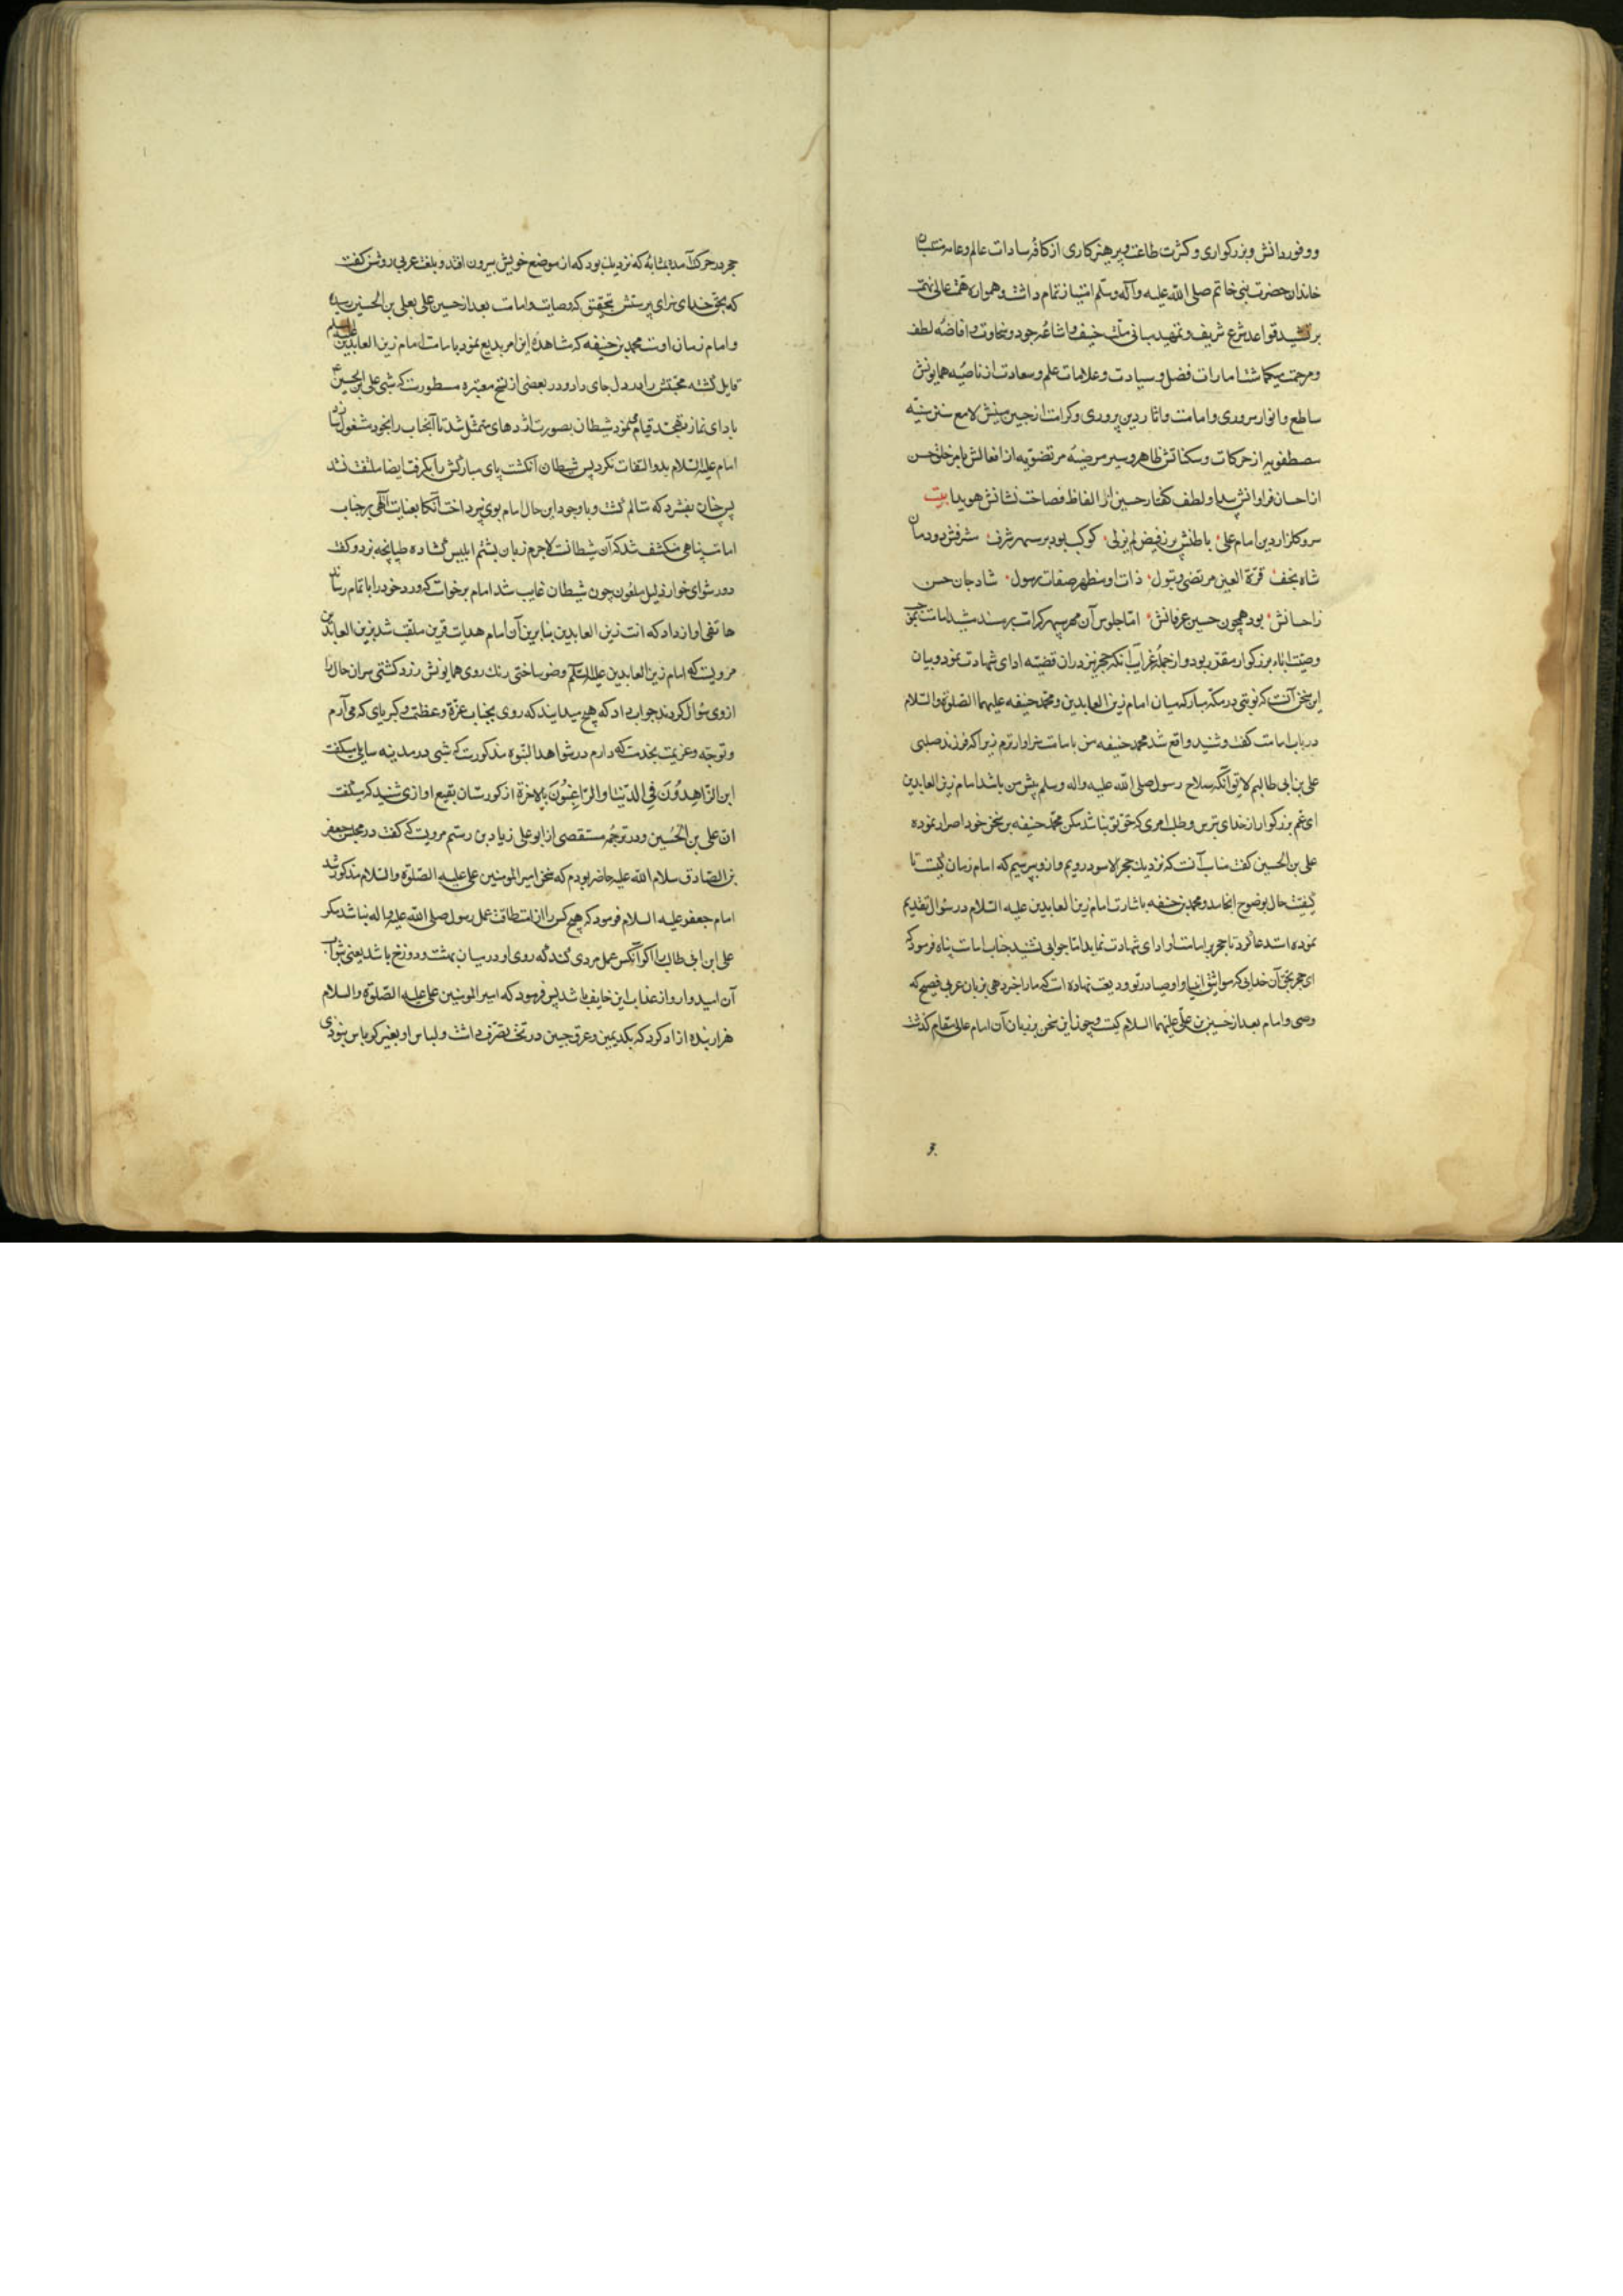 و وفور دانش و بزرکواری و کثرت طاعت و پرهیزکاری از کافهٔ سادات عالم و عامهٔ منتسبان
خاندان حضرت نبی خاتم صلی الله علیه وآله وسلم امتیاز تمام داشت و همواره همت عالی نهمت
بر تشیید قواعد شرع شریف و تمهید مبانی ملت حنیف و اشاعهٔ جود و سخاوت و افاضهٔ لطف
و مرحمت میکماشت امارات فضل و سیادت و علامات علم و سعادت از ناصیهٔ همایونش
ساطع و انوار سروری و امامت و اثار دین پروری و کرامت از جبین مبینش لامع سنن سنیّه
مصطفویه از حرکات و سکناتش ظاهر و سیر مرضیهٔ مرتضویه از افعالش باهر خلق حسن
از احسان فراوانش پیدا و لطف کفتار حسین از الفاظ فصاحت نشانش هویدا بیت
سرو کلزار دین امام علی باطنش پر ز فیض لم یزلی کوکب بود بر سپهر شرف شرفش دودمان
شاه نجف قرة العین مرتضی و بتول ذات او مظهر صفات رسول شاد جان حسن
ز احسانش بود همچون حسین عرفانش امّا جلوس آن مهر سپهر کرامت بر مسند امامت بموجب
وصیّت اباء بزرکوار مقدّر بود و از جملهٔ غرایب آنکه حجر نیز دران قضیّه ادای شهادت نمود و بیان
این سخن آنست که نوبتی در مکّه مبارکه میان امام زین العابدین و محمد حنیفه علیهما الصلوة والسلام
در باب امامت کفت و شنید واقع شد محمد حنیفه من بامامت سزاوارترم زیرا که فرزند صلبی
علی بن ابی طالبم لایق آنکه سلاح رسول صلی الله علیه واله وسلم پیش من باشد امام زین العابدین
ای عم بزرکوار از خدای بترس و طلب امری که حق تو نباشد مکن محمّد حنیفه بر سخن خود اصرار نموده
علی بن الحسین کفت مناسب آنست که نزدیک حجر الاسود رویم و از و پرسیم که امام زمان کیست تا
کیفیت حال بوضوح انجامد و محمد بن حنیفه باشارت امام زین العابدین علیه السلام در سوال تقدیم
نموده استدعا کرد تا حجر بر امامت او ادای شهادت نماید امّا جوابی نشنید جناب امامت پناه فرمود که
ای حجر بحق آن خدایی که مواثیق انبیا و اوصیا در تو ودیعت نهاده است که ما را خبر دهی بزبان عربی فصیح که
وصی و امام بعد از حسین بن علی علیهما السلام کیست و چون این سخن بر زبان آن امام عالی مقام کذشت
حجر در حرکت آمد بمثابهٔ که نزدیک بود که از موضع خویش بیرون افتد و بلغت عربی روشن کفت
که بحق خدای سزای پرستش بتحقیق که وصایت و امامت بعد از حسین علی بعلی بن الحسین رسیده
و امام زمان اوست محمد بن حنیفه که مشاهدهٔ این امر بدیع نمود بامامت امام زین العابدین علیه السلام
قایل کشته محبّتش را در دل جای داد و در بعضی از نسخ معتبره مسطورست که شبی علی ابن الحسین ع
بادای نماز تهجّد قیام مینمود شیطان بصورت اژدهای متمثّل شد تا آنجناب را بخود مشغول کرداند
امام علیه السلام بدو التفات نکرد پس شیطان انکشت پای مبارکش را بکرفت ایضا ملتفت نشد
پس چنان بفشرد که متالم کشت و با وجود این حال امام بوی نپرداخت آنکا بعنایت الهی بر جناب
امامت پناهی منکشف شد که آن شیطانست لاجرم زبان بشتم ابلیس کشاده طپانچه بزد و کفت
دور شو ای خوار ذلیل ملعون چون شیطان غایب شد امام برخواست که ورد خود را باتمام رساند
هاتفی اواز داد که انت زین العابدین بنابرین آن امام هدایت قرین ملقب شد بزین العابدین
مرویست که امام زین العابدین علیه السلم وضو ساختی رنک روی همایونش زرد کشتی سر ان حال را
از وی سؤال کردند جواب داد که هیچ میدانید که روی بجناب عزّة و عظمت و کبریای که می آرم
و توجّه و عزیمت بخدمت که دارم در شواهد النبوه مذکورست که شبی در مدینه سایلی میکفت
این الزّاهِدُونَ فی الدّنیا والرّاغِبُونَ بالاخرَة از کورستان بقیع اوازی شنید که میکفت
ان علی بن الحُسین و در ترجمهٔ مستقصی از ابو علی زیاد بن رستم مرویست که کفت در مجلس جعفر
بن الصادق سلام الله علیه حاضر بودم که سخن امیر المومنین علی علیه الصّلوة والسلام مذکور شد
امام جعفر علیه السلام فرمود که هیچ کس را ان استطاقت عمل رسول صلی الله علیه و اله نباشد مکر
علی ابن ابی طالب را اکر آنکس عمل مردی کند که روی او در میان بهشت و دوزخ باشد یعنی بثواب
آن امیدوار و از عذاب این خایف باشد پس فرمود که امیر المومنین علی علیه الصّلوة والسلام
هزار بنده ازاد کرد که بکد یمین و عرق جبین در تحت تصرّف داشت و لباس او بغیر کرباس نبودی